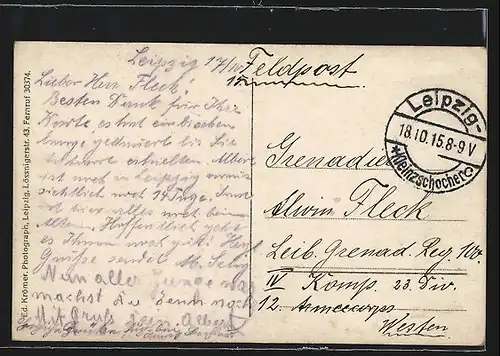 Leipzig 17/10 15
Feldpost
Lieber Herr Fleck!
Besten Dank für Ihre
Karte, es hat ein bischen
lange gedauert bis Sie
erhielten. Albert
ist noch in Leipzig
noch 14 Tage. Sonst
ist hier alles noch beim
Alten. Hoffentlich geht
es Ihnen noch gut. Herzl.
Grüsse sendet M.
Nun alter Junge was
machst du denn noch
Mit Gruß dein Albert
Leipzig-
18.10.15.8-9V
*Kleinzschocher
Grenadier
Alwin Fleck
Leib. Grenad. Reg. 100.
IV Komp. 23. Div.
12. Armeecorps
Westen
Ed. Krömer, Photograph, Leipzig, Lössnigerstr. 43. Fernruf 30374.